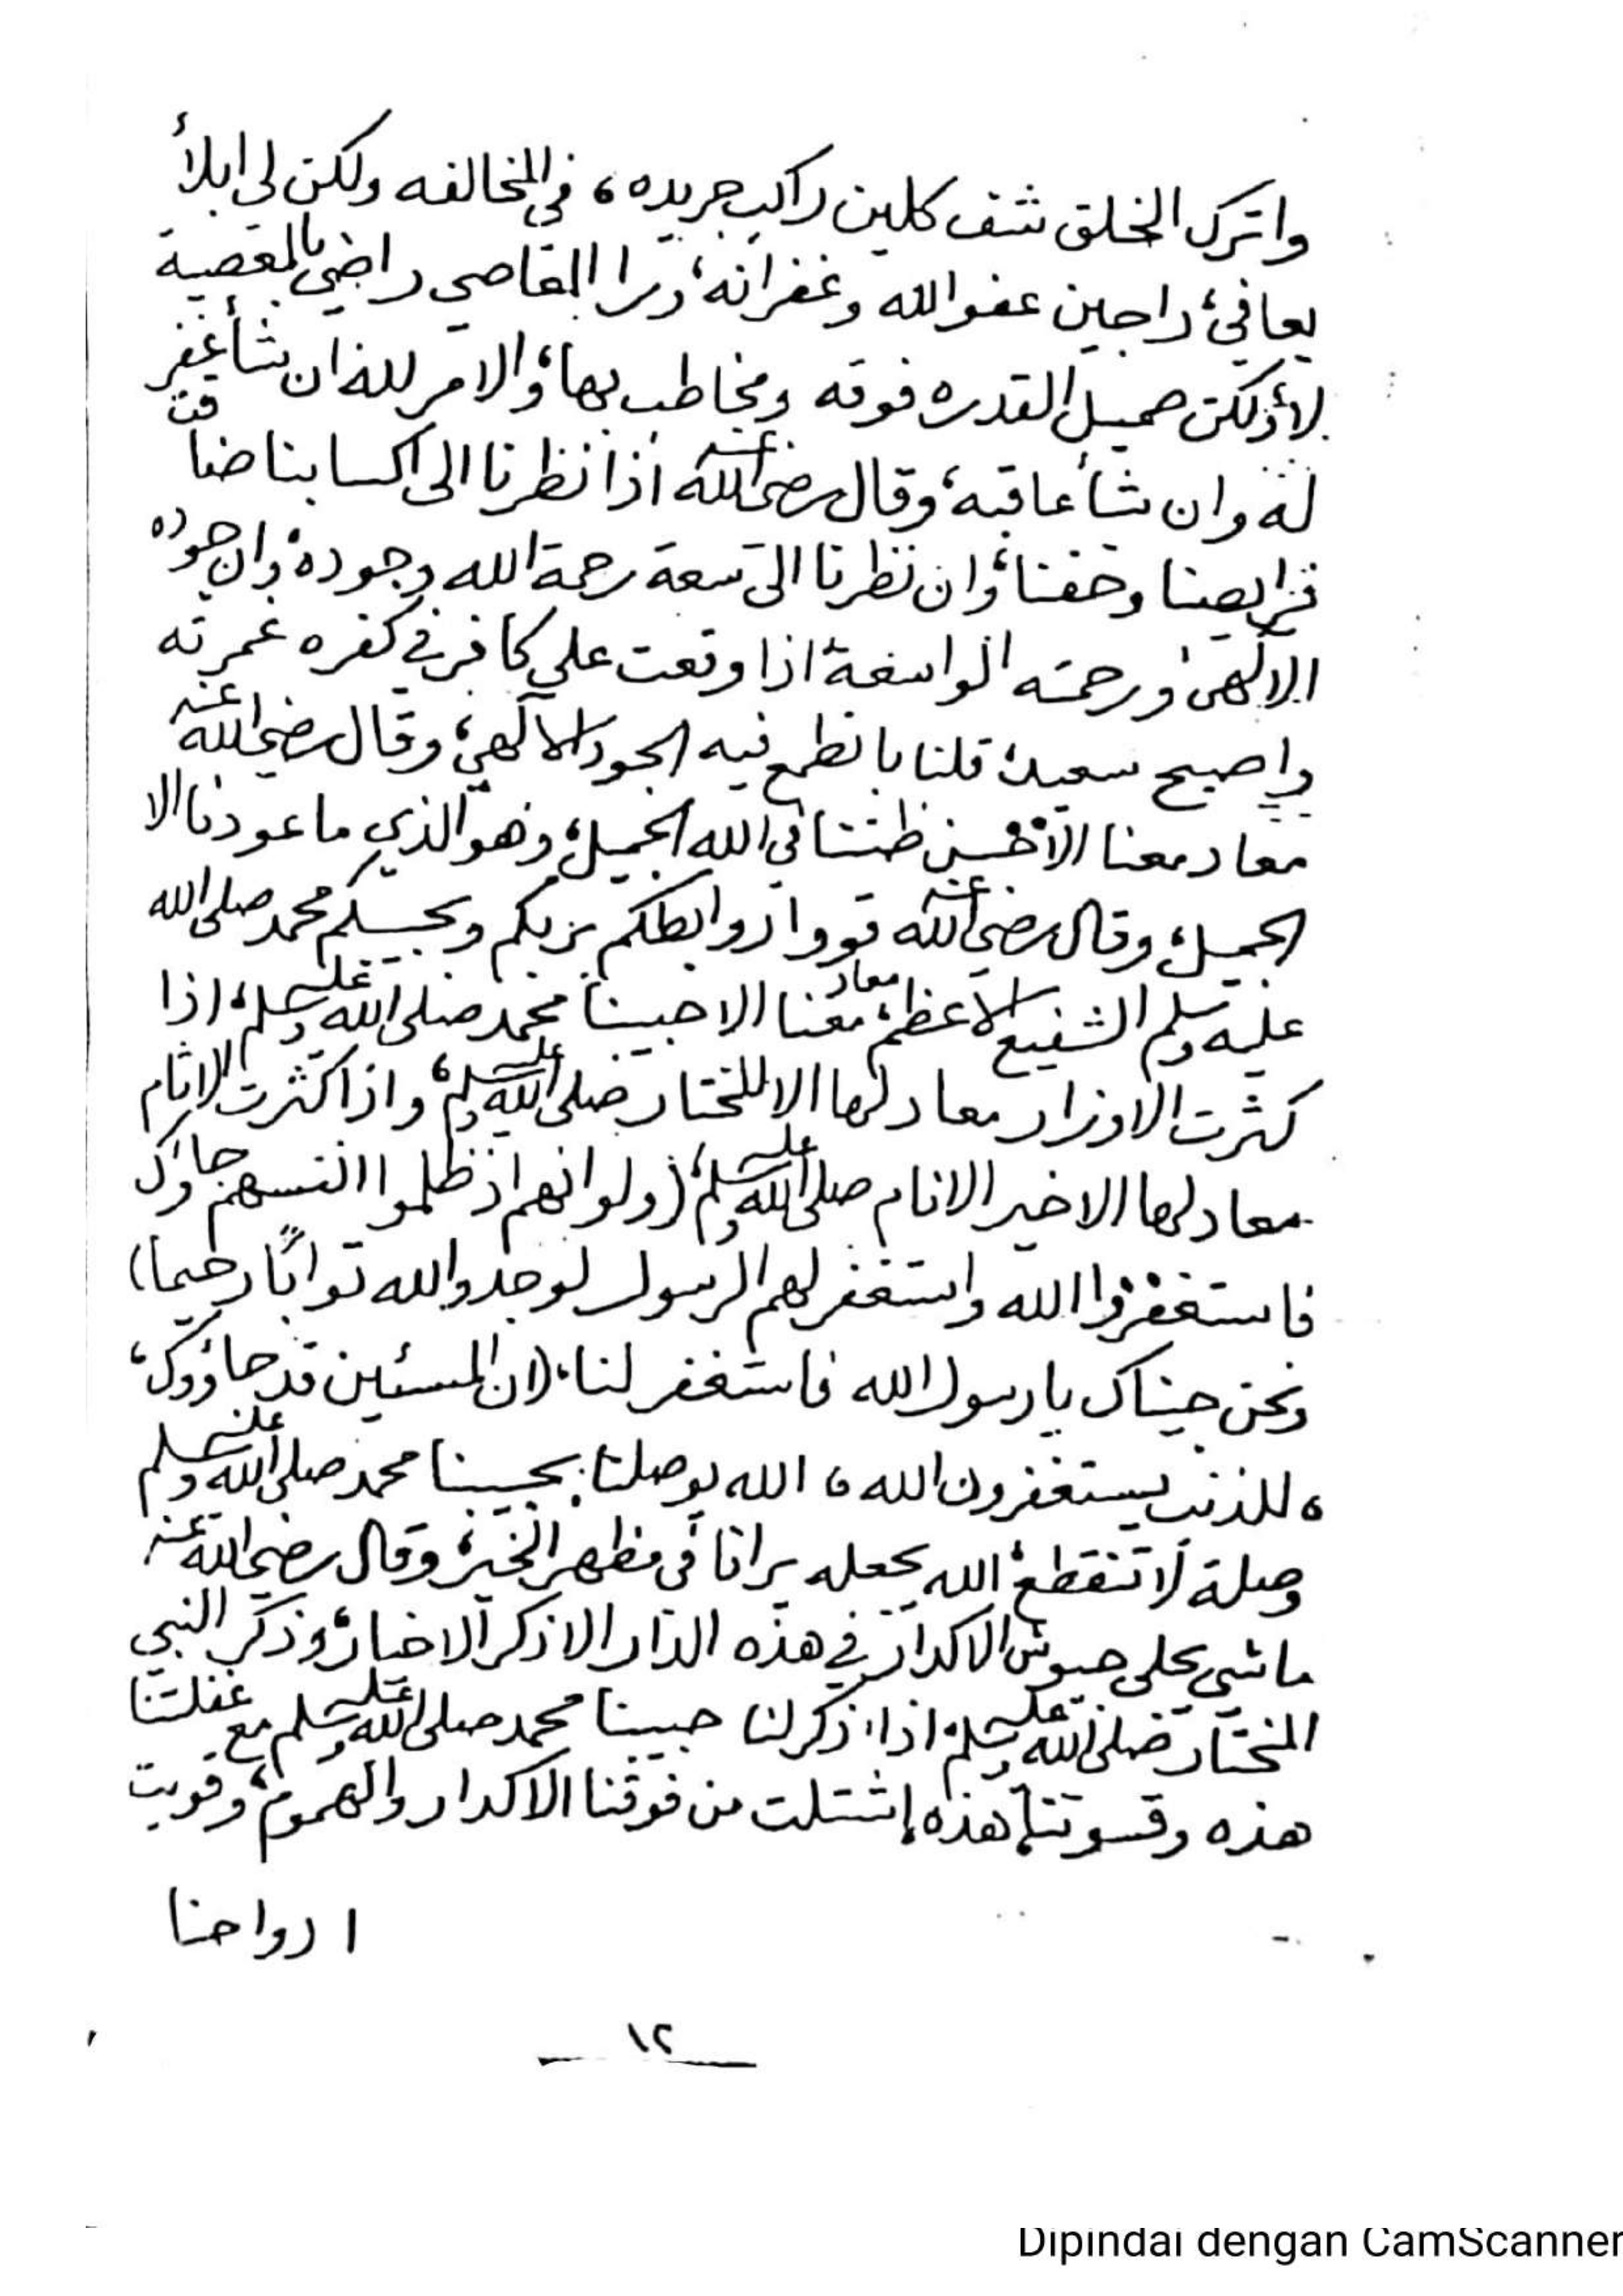 واترك الخلق شف كلين راكب جريده، في المخالفه ولكن لي ابلأ
يعافي، راجين عفو الله وغفرانه، ترا العاصي راضي بالمعصية
لا، ولكن صميل القدره فوقه ومخاطب بها، والامر لله ان شأ غفر
له وان شأ عاقبه، وقال رضي الله عنه اذا نظرنا الى اكسابنا ضاقت
فرايصنا وخفنا، وان نظرنا الى سعة رحمة الله وجوده، وان جوده
الالهي ورحمته الواسعة اذا وقعت على كافر في كفره غمرته
واصبح سعيد، قلنا با نطمع فيه الجود الالهي، وقال رضي الله عنه
معاد معنا الا حسن ظننا في الله الجميل، وهو الذي ما عودنا الا
الجميل، وقال رضي الله عنه قووا روابطكم بربكم وبحبيبكم محمد صلى الله
عليه وسلم الشفيع الاعظم، معاد معنا الا حبيبنا محمد صلى الله عليه وسلم، اذا
كثرت الاوزار معاد لها الا المختار صلى الله عليه وسلم، واذا كثرت الاثام
معاد لها الا خير الانام صلى الله عليه وسلم، (ولو انهم اذ ظلموا انفسهم جاؤك
فاستغفروا الله واستغفر لهم الرسول لوجدوا الله توابًا رحيما)
ونحن جيناك يا رسول الله فاستغفر لنا، (ان المسئين قد جاؤوك،
، للذنب يستغفرون الله، الله يوصلنا بحبيبنا محمد صلى الله عليه وسلم
وصلة لا تنقطع، الله يجعله يرانا في مظهر الخير، وقال رضي الله عنه
ماشي يجلي جيوش الاكدار في هذه الدار الا ذكر الاخيار، وذكر النبي
المختار صلى الله عليه وسلم، اذا ذكر لنا حبيبنا محمد صلى الله عليه وسلم مع غفلتنا
هذه وقسوتنا هذه إشتلت من فوقنا الاكدار والهموم، وقويت
ارواحنا
١٢
Dipindai dengan CamScanner